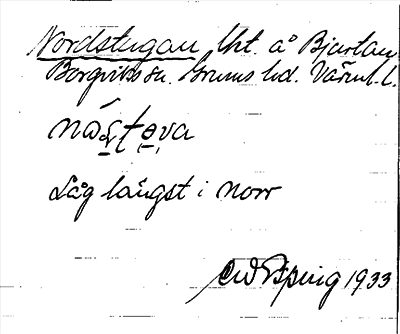 Nordstugan lht. å Bjertan
Borgviks sn. Grums hd. Värml. l.
når̲tə̲va
Låg längst i norr
1933